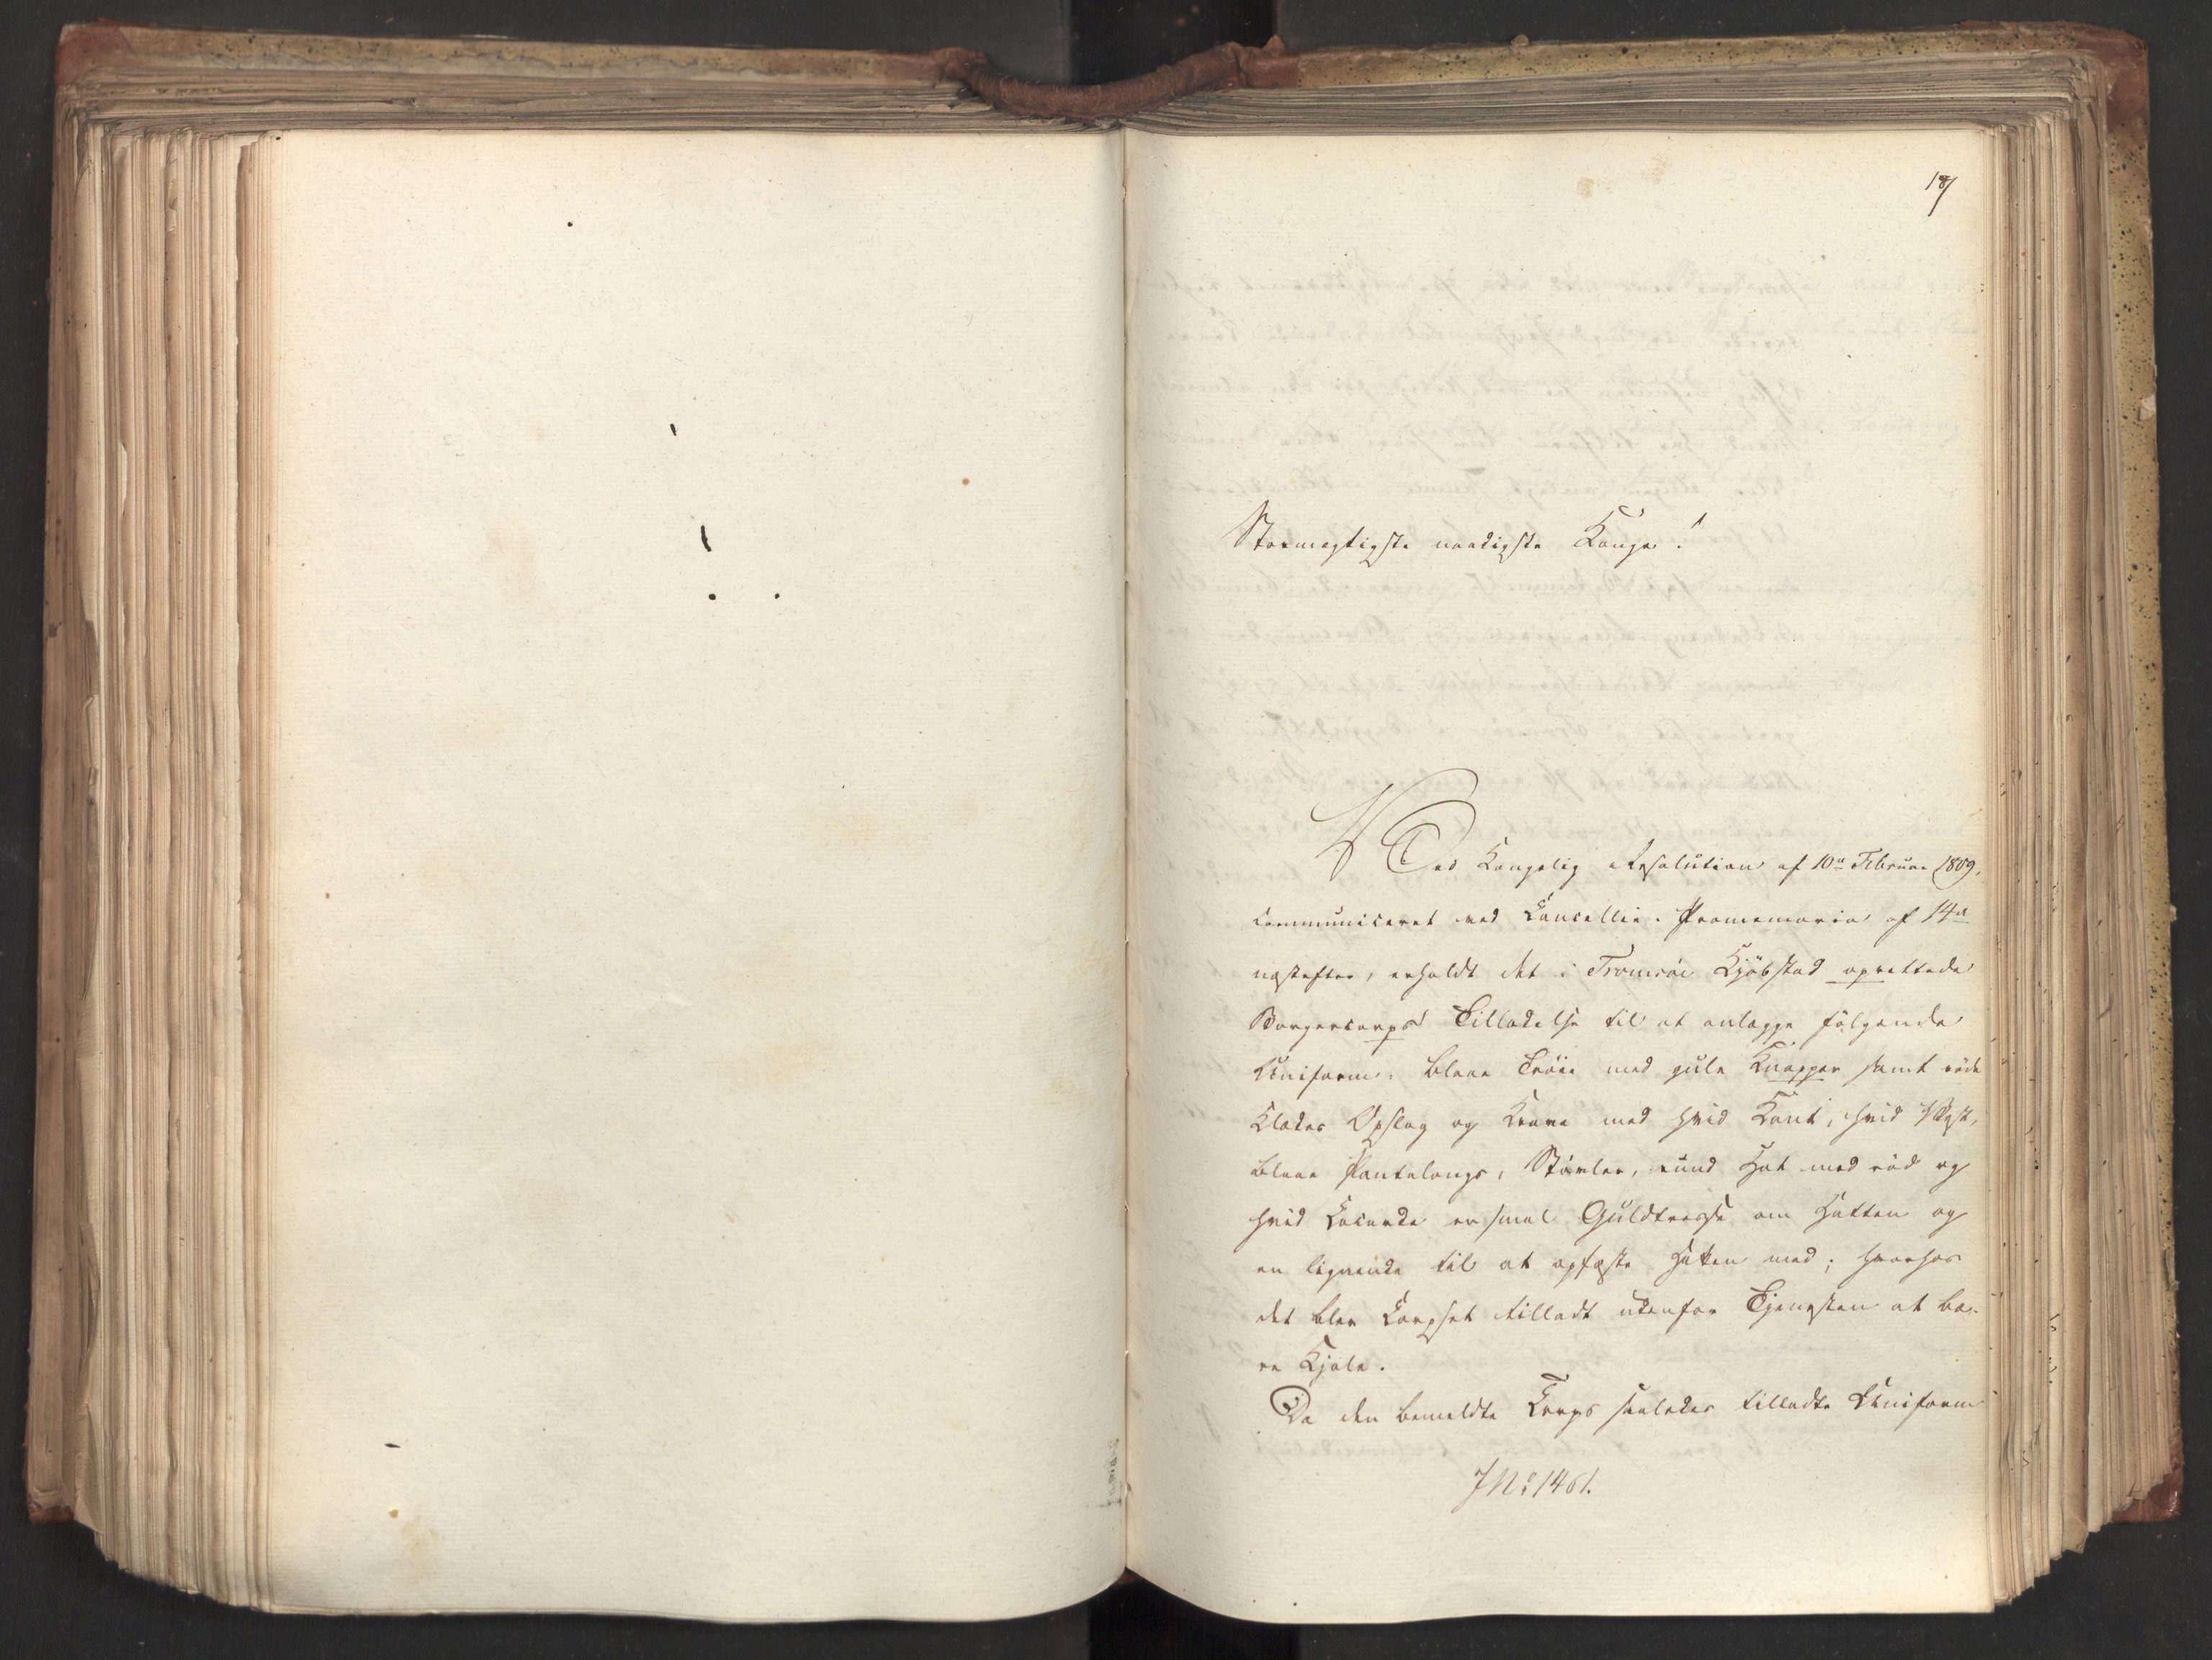 Stormægtigste naadigste Konge!
Ved Kongelig Resolution af 10de Februar 1809,
communiceret ved Cancellie-Promemoria af 14de
næstefter, erholdt det i Tromsöe Kjöbstad oprettede
Borgercorps Tilladelse til at anlægge fölgende
Uniform: blaae Tröie med gule Knapper samt röde
Klædes Opslag og Krave med hvid Kant, hvid Væst,
blaae Pantalongs, Stövler, rund Hat med röd og
hvid Cocarde en smal Guldtresse om Hatten og
en lignende til at opfæste Hatten med; hvorhos
det blev Corpset tilladt udenfor Tjenesten at bæ-
re Kjole.
Da den bemeldte Corps saaledes tilladte Uniform
JNo 1461.